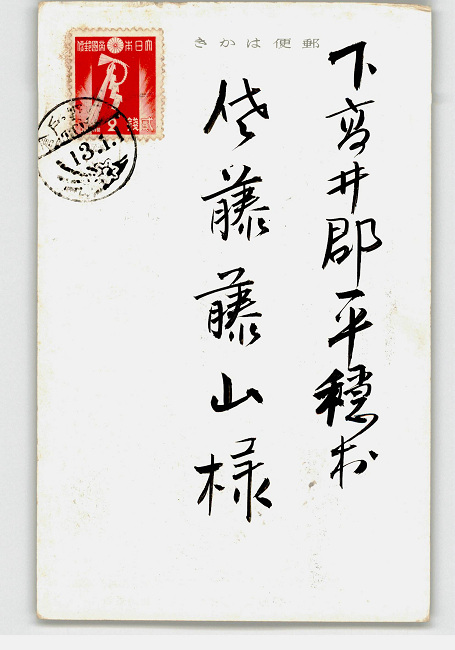 郵便はかき
下高井郡平穏村
佐藤藤山様
大日本帝國郵便
貳錢
13.1.1